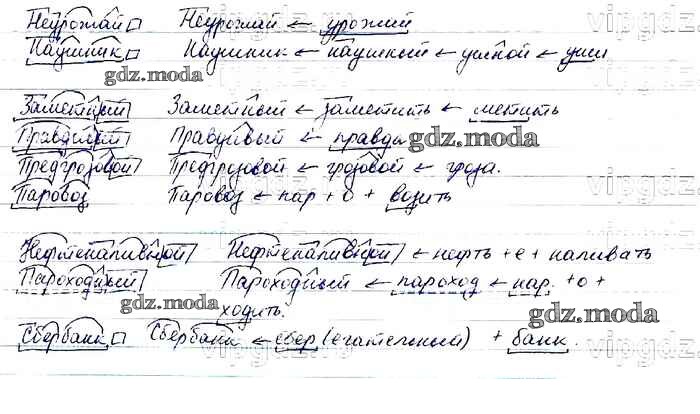 Неурожай Неурожай ← урожай
Наушник Наушник ← наушный ← ушной ← уши
gdz.moda
Заметный Заметный ← заметить ← метить
Правдивый Правдивый ← правда
gdz.moda
Предгрозовой Предгрозовой ← грозовой ← гроза.
Паровоз Паровоз ← пар + о + возить
Нефтеналивной Нефтеналивной ← нефть + е + наливать
Пароходный Пароходный ← пароход ← пар + о +
gdz.moda ходить.
gdz.moda
Сбербанк Сбербанк ← сбер(егательный) + банк.
vipgdz
vipgdz
vipgdz
vipgdz